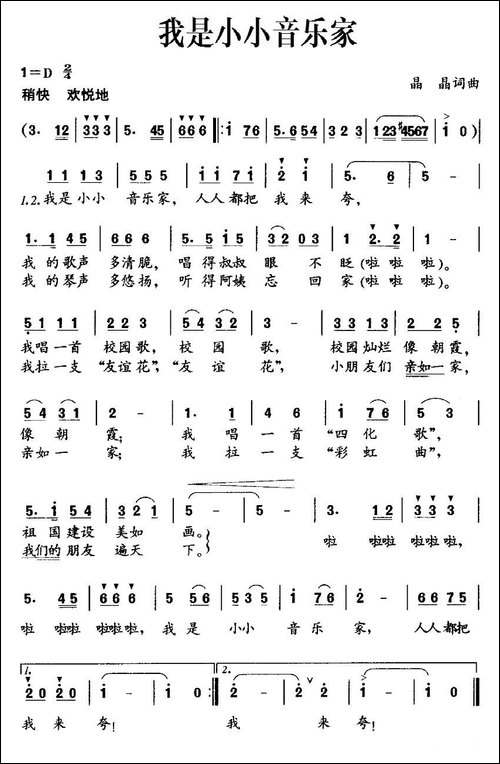 我是小小音乐家
1=D 2/4
晶 晶词曲
稍快 欢悦地
(3. 12 | 333 | 5. 45 | 666 |: i 76 | 5.654 | 323 | 123#4567 | i 0)
11 11 13 | 555 | ii 7i | 2 i | 5. 6 | 5 - |
1.2.我是小小 音乐家, 人人都把 我来 夸,
1.1 45 | 666 | 5.5 i5 | 3203 | 1 2.2 | 1 - |
我的歌声 多清脆, 唱得叔叔 眼 不 眨(啦 啦啦 啦)。
我的琴声 多悠扬, 听得阿姨 忘 回 家(啦 啦啦 啦)。
51 11 | 223 | 54 32 | 3 - | 13 01 13 | 2 25 |
我唱一首 校园歌, 校 园 歌, 校园灿烂 像 朝霞,
我拉一支 “友谊花”,“友 谊 花”, 小朋友们 亲如一家,
54 31 | 2 - | 1. 1 | 4 6 | i 76 | 5 3 |
像 朝 霞; 我 唱 一 首 “四 化 歌”,
亲如一 家; 我 拉 一 支 “彩 虹 曲”,
5.i 54 | 321 | 5 - | 5 - | 3. 12 | 333 |
祖国建设 美如 画。 啦 啦啦 啦啦啦,
我们的朋友 遍天 下。
5. 45 | 666 | 5 56 | 53 35 | i 76 | 2 - | 66 75 |
啦 啦啦 啦啦啦, 我 是 小小 音 乐 家, 人人都把
1. 2.
20 20 | i - | i 0 :| 2 - | 2 - | i - | i 0 |
我 来 夸! 我 来 夸!